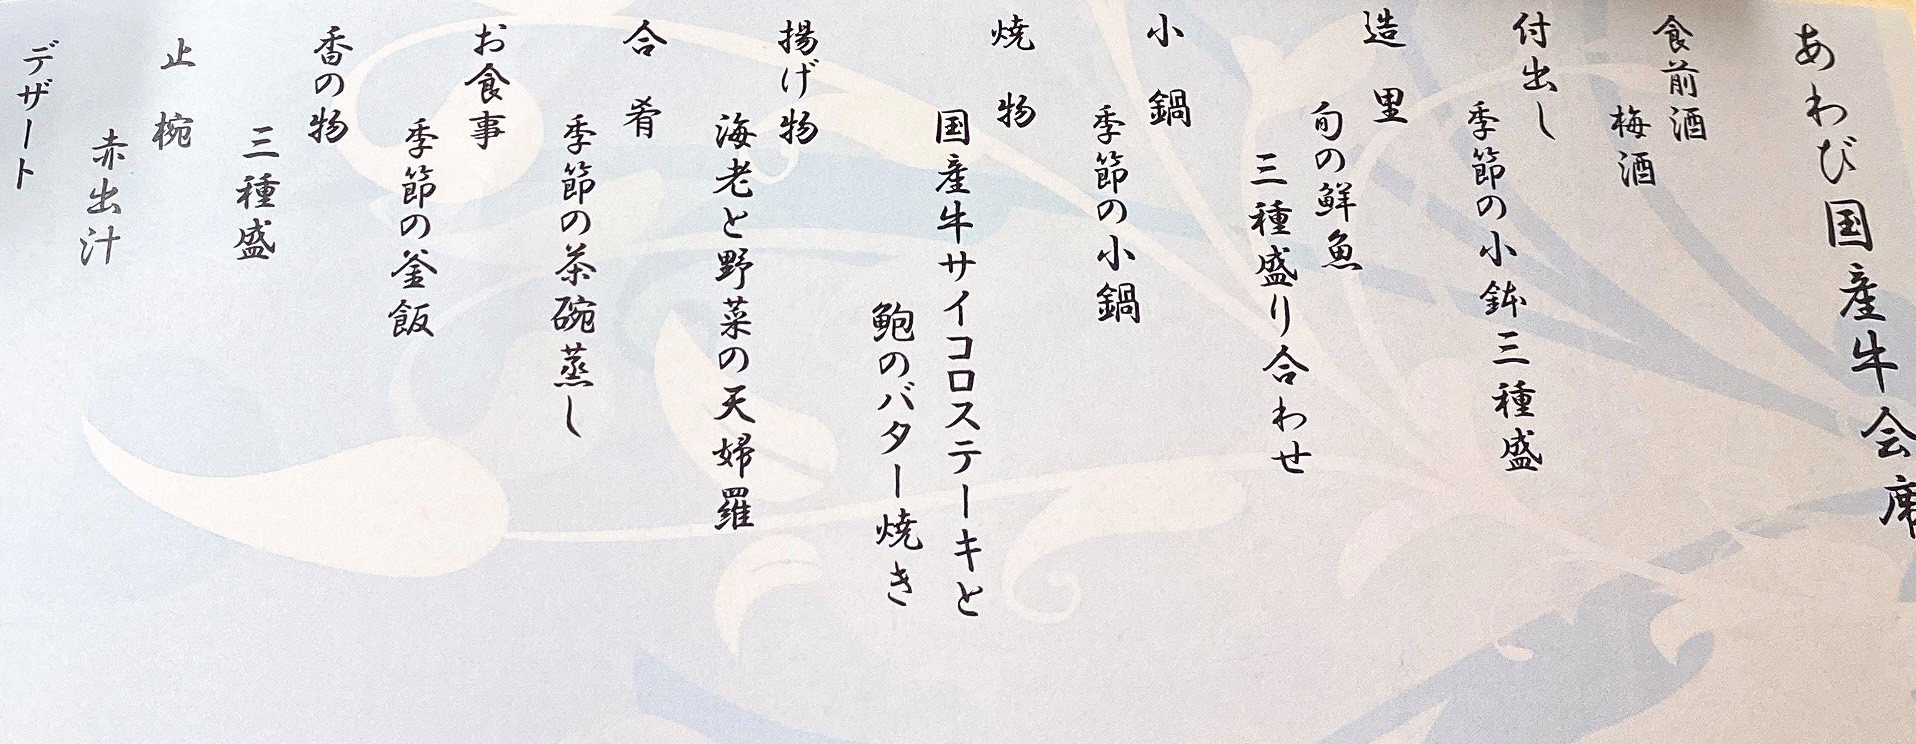 あわび国産牛会席
食前酒
梅酒
付出し
季節の小鉢三種盛
造里
旬の鮮魚
三種盛り合わせ
小鍋
季節の小鍋
焼物
国産牛サイコロステーキと
鮑のバター焼き
揚げ物
海老と野菜の天婦羅
合肴
季節の茶碗蒸し
お食事
季節の釜飯
香の物
三種盛
止椀
赤出汁
デザート